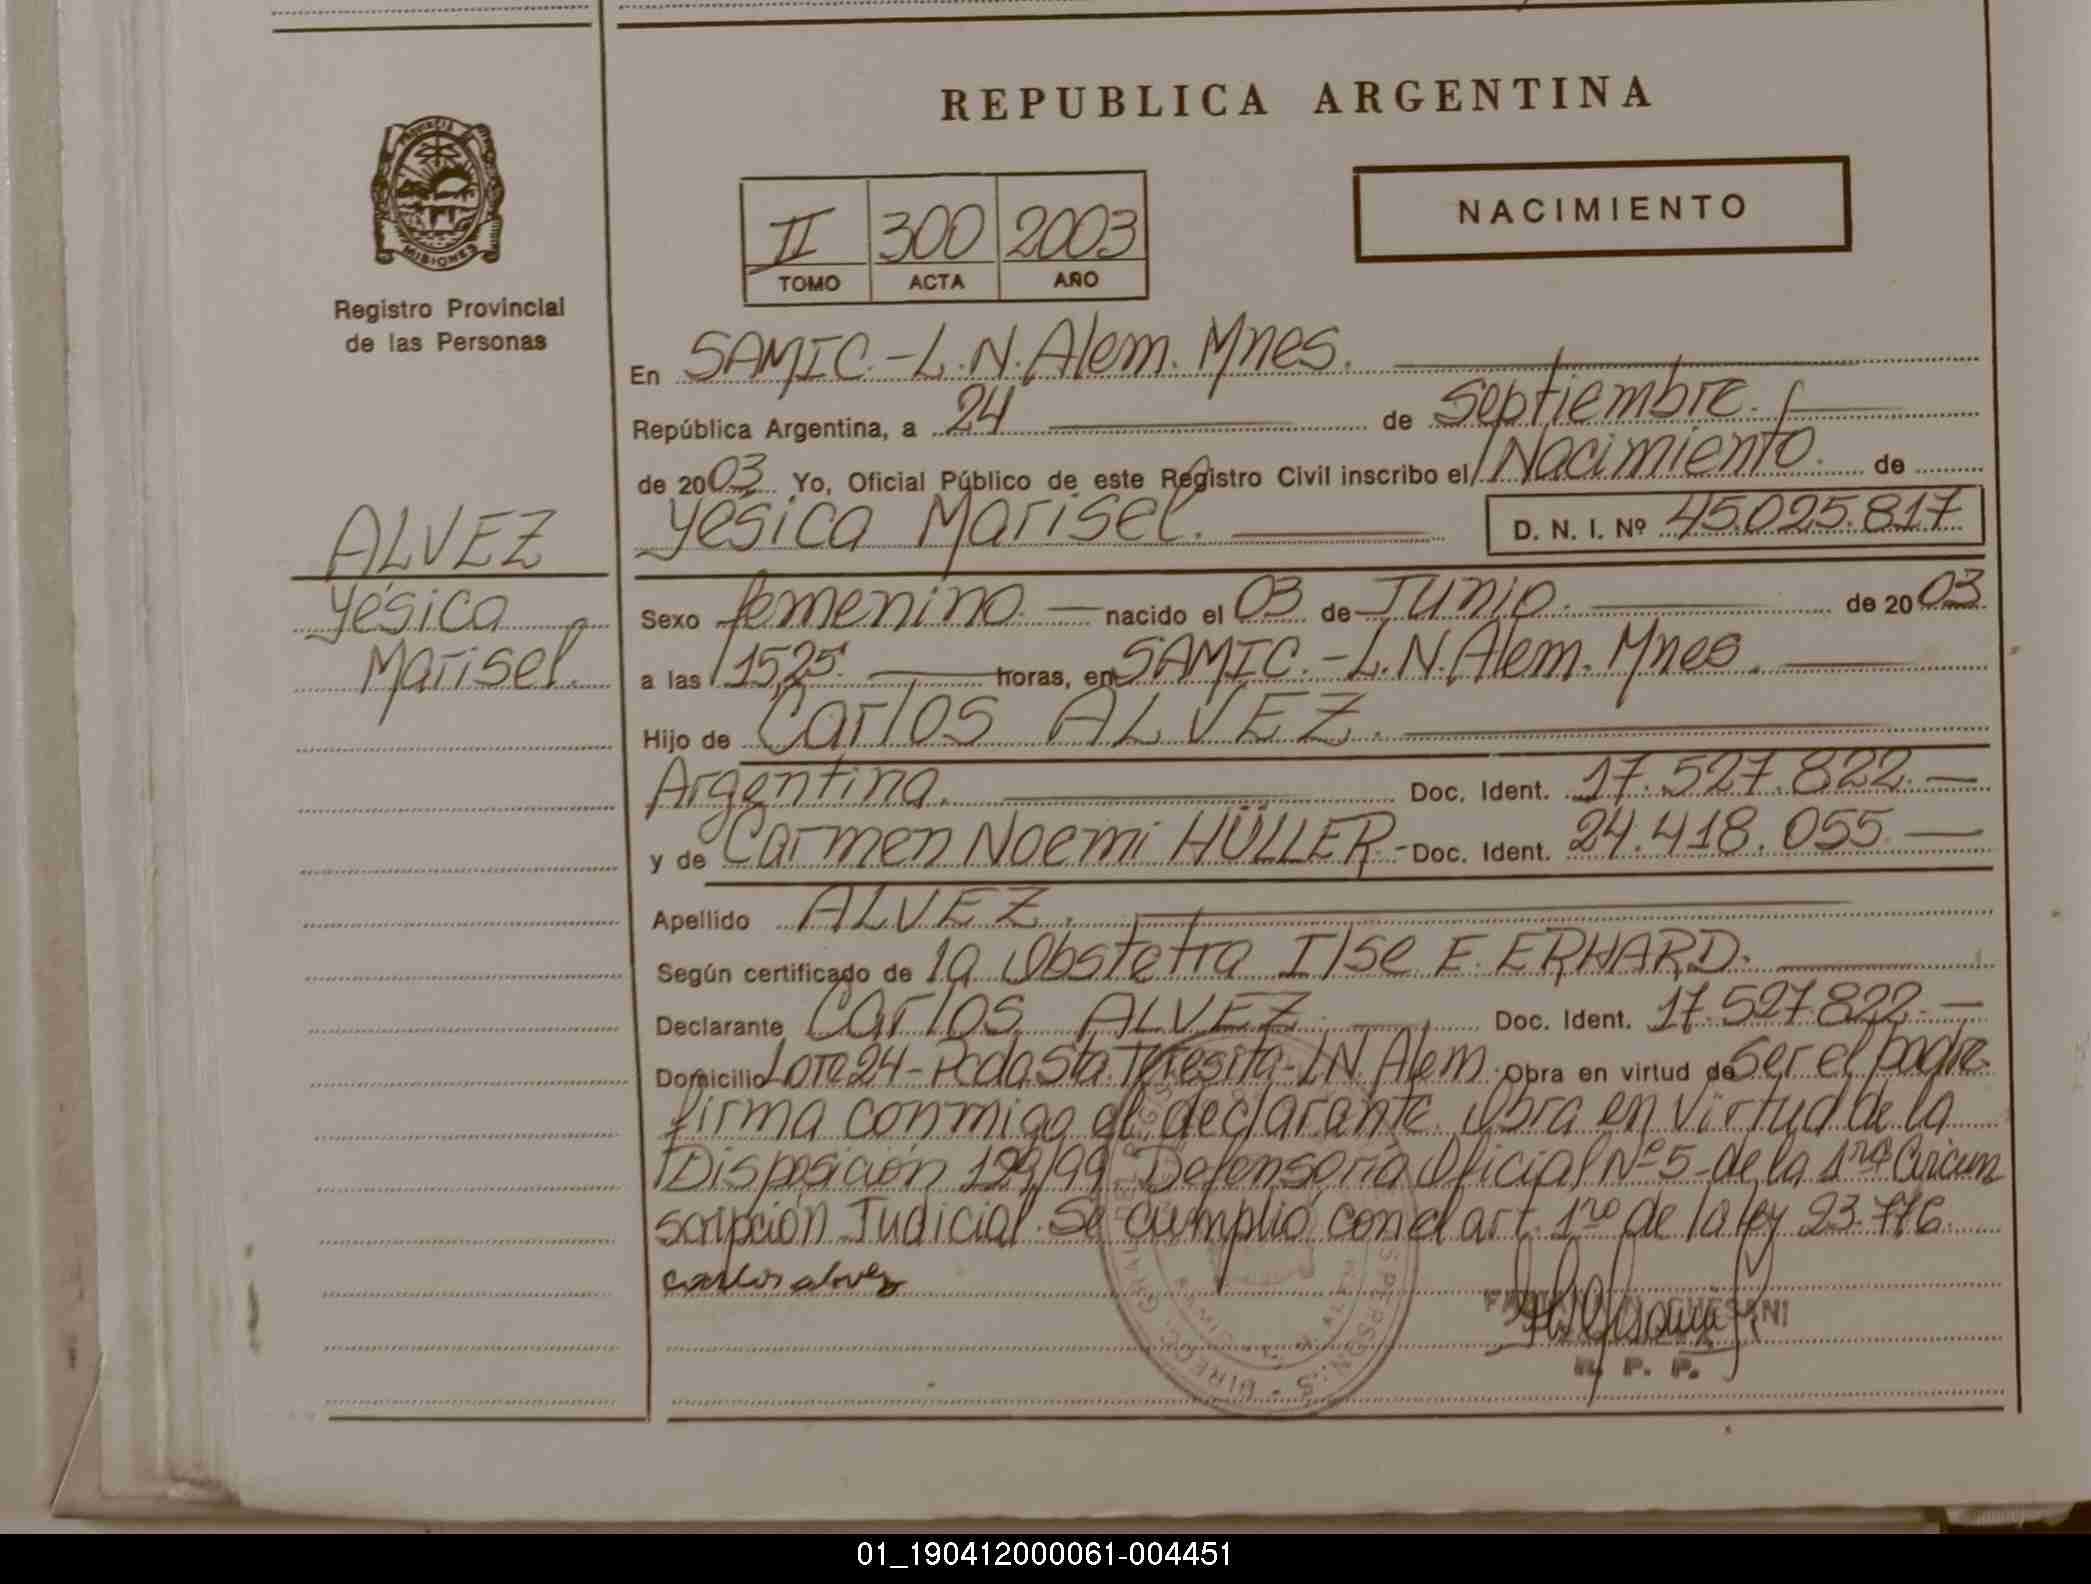 REPUBLICA ARGENTINA
PROVINCIA DE
MISIONES
Registro Provincial
de las Personas
II 300 2003
TOMO ACTA AÑO
NACIMIENTO
En SAMIC.-L.N.Alem. Mnes.
República Argentina, a 24 de Septiembre.
de 2003 Yo, Oficial Público de este Registro Civil inscribo el Nacimiento. de
Yésica Marisel. D. N. I. Nº 45.025.817
ALVEZ
Yésica
Marisel.
Sexo femenino. nacido el 03 de Junio. de 2003
a las 15,25. horas, en SAMIC.-L.N.Alem. Mnes.
Hijo de Carlos ALVEZ.
Argentina. Doc. Ident. 17.527.822.
y de Carmen Noemi HÜLLER.- Doc. Ident. 24.418.055.
Apellido ALVEZ.
Según certificado de la Obstetra Ilse E. ERHARD.
Declarante Carlos ALVEZ. Doc. Ident. 17.527.822.
Domicilio Lote 24-Pcda.Sta.Teresita-L.N.Alem. Obra en virtud de Ser el padre.
firma conmigo el declarante. Obra en virtud de la
Disposición 129/99 Defensoria Oficial Nº5-de la 1ra Circun
scripción Judicial. Se cumplió con el art. 1ro de la ley 23.776.
carlos alvez
R. P. P.
01_190412000061-004451